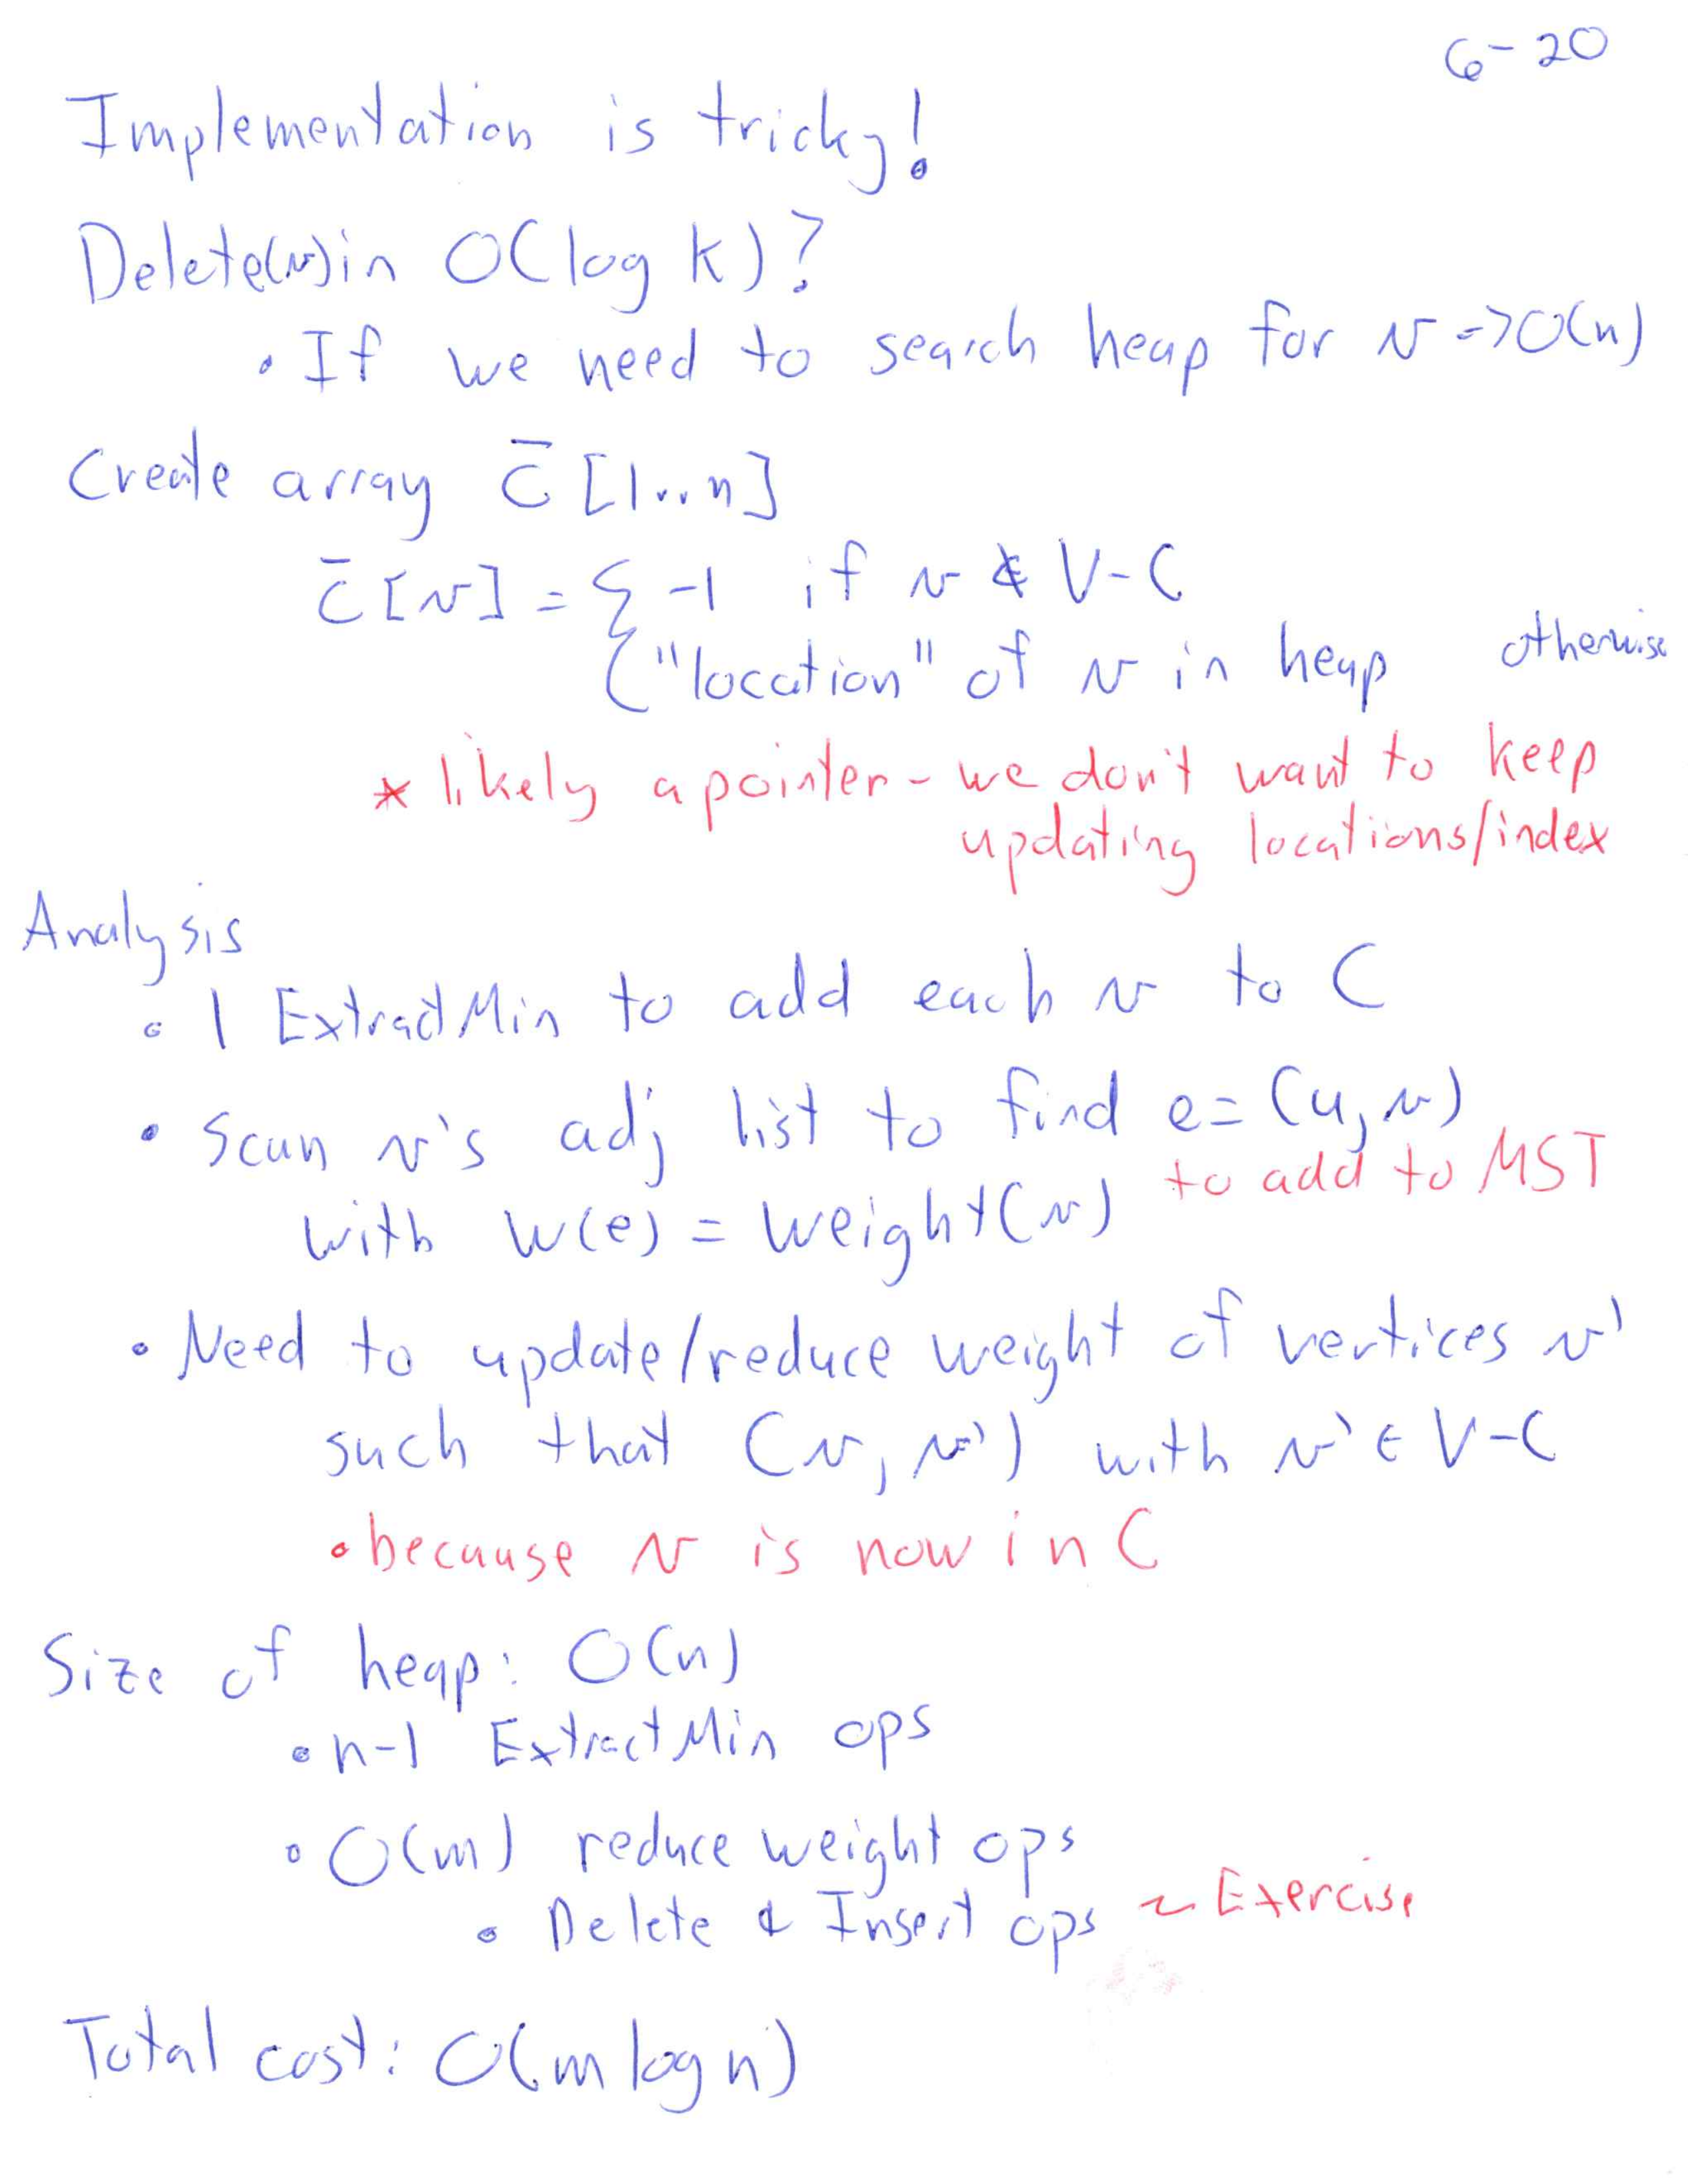 6-20
Implementation is tricky!
Delete(v) in O(log k)?
• If we need to search heap for v => O(n)
Create array C̄ [1..n]
C̄[v] = { -1 if v ∉ V-C
"location" of v in heap otherwise
* likely a pointer - we don't want to keep
updating locations/index
Analysis
• 1 ExtractMin to add each v to C
• Scan v's adj list to find e = (u, v)
to add to MST
with w(e) = weight(v)
• Need to update/reduce weight of vertices v'
such that (v, v') with v' ∈ V-C
• because v is now in C
Size of heap: O(n)
• n-1 ExtractMin ops
• O(m) reduce weight ops
• Delete & Insert ops ~ Exercise
Total cost: O(m log n)